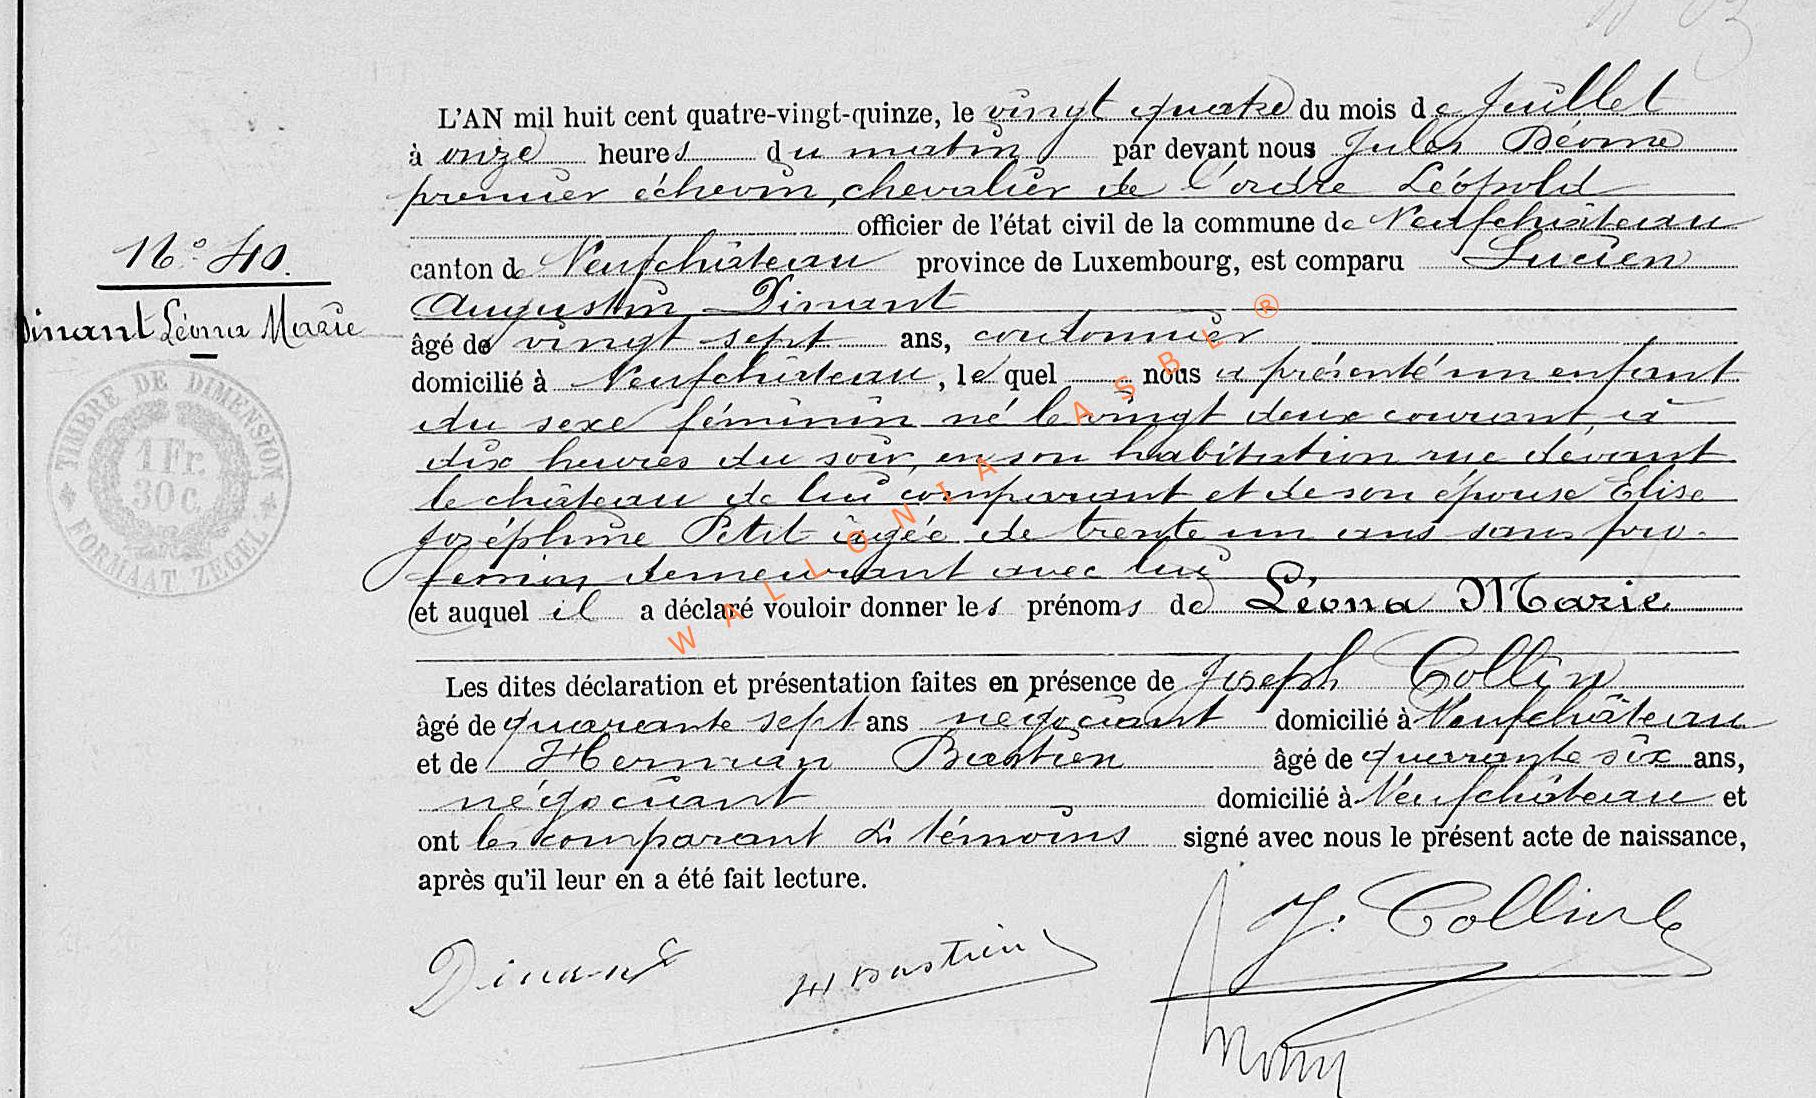 L'AN mil huit cent quatre-vingt-quinze, le vingt quatre du mois de Juillet
à onze heures du matin par devant nous Jules
premier échevin, chevalier de l'ordre Léopold
officier de l'état civil de la commune de Neufchâteau
canton de Neufchâteau province de Luxembourg, est comparu Lucien
Augustin Dinant
âgé de vingt sept ans, cordonnier
domicilié à Neufchâteau, le quel nous a présenté un enfant
du sexe féminin né le vingt deux courant, à
dix heures du soir, en son habitation rue devant
le château de lui comparant et de son épouse Elise
Joséphine Petit âgée de trente un ans sans pro-
fession, demeurant avec lui
et auquel il a déclaré vouloir donner les prénoms de Léona Marie
Les dites déclaration et présentation faites en présence de Joseph Collin
âgé de quarante sept ans négociant domicilié à Neufchâteau
et de Herman Bastien âgé de quarante six ans,
négociant domicilié à Neufchâteau et
ont les comparant & témoins signé avec nous le présent acte de naissance,
après qu'il leur en a été fait lecture.
Dinant
H Bastien
J. Collin
N° 40.
Dinant Léona Marie
TIMBRE DE DIMENSION
1 Fr.
30 c.
FORMAAT ZEGEL
WALLONIA ASBL ®